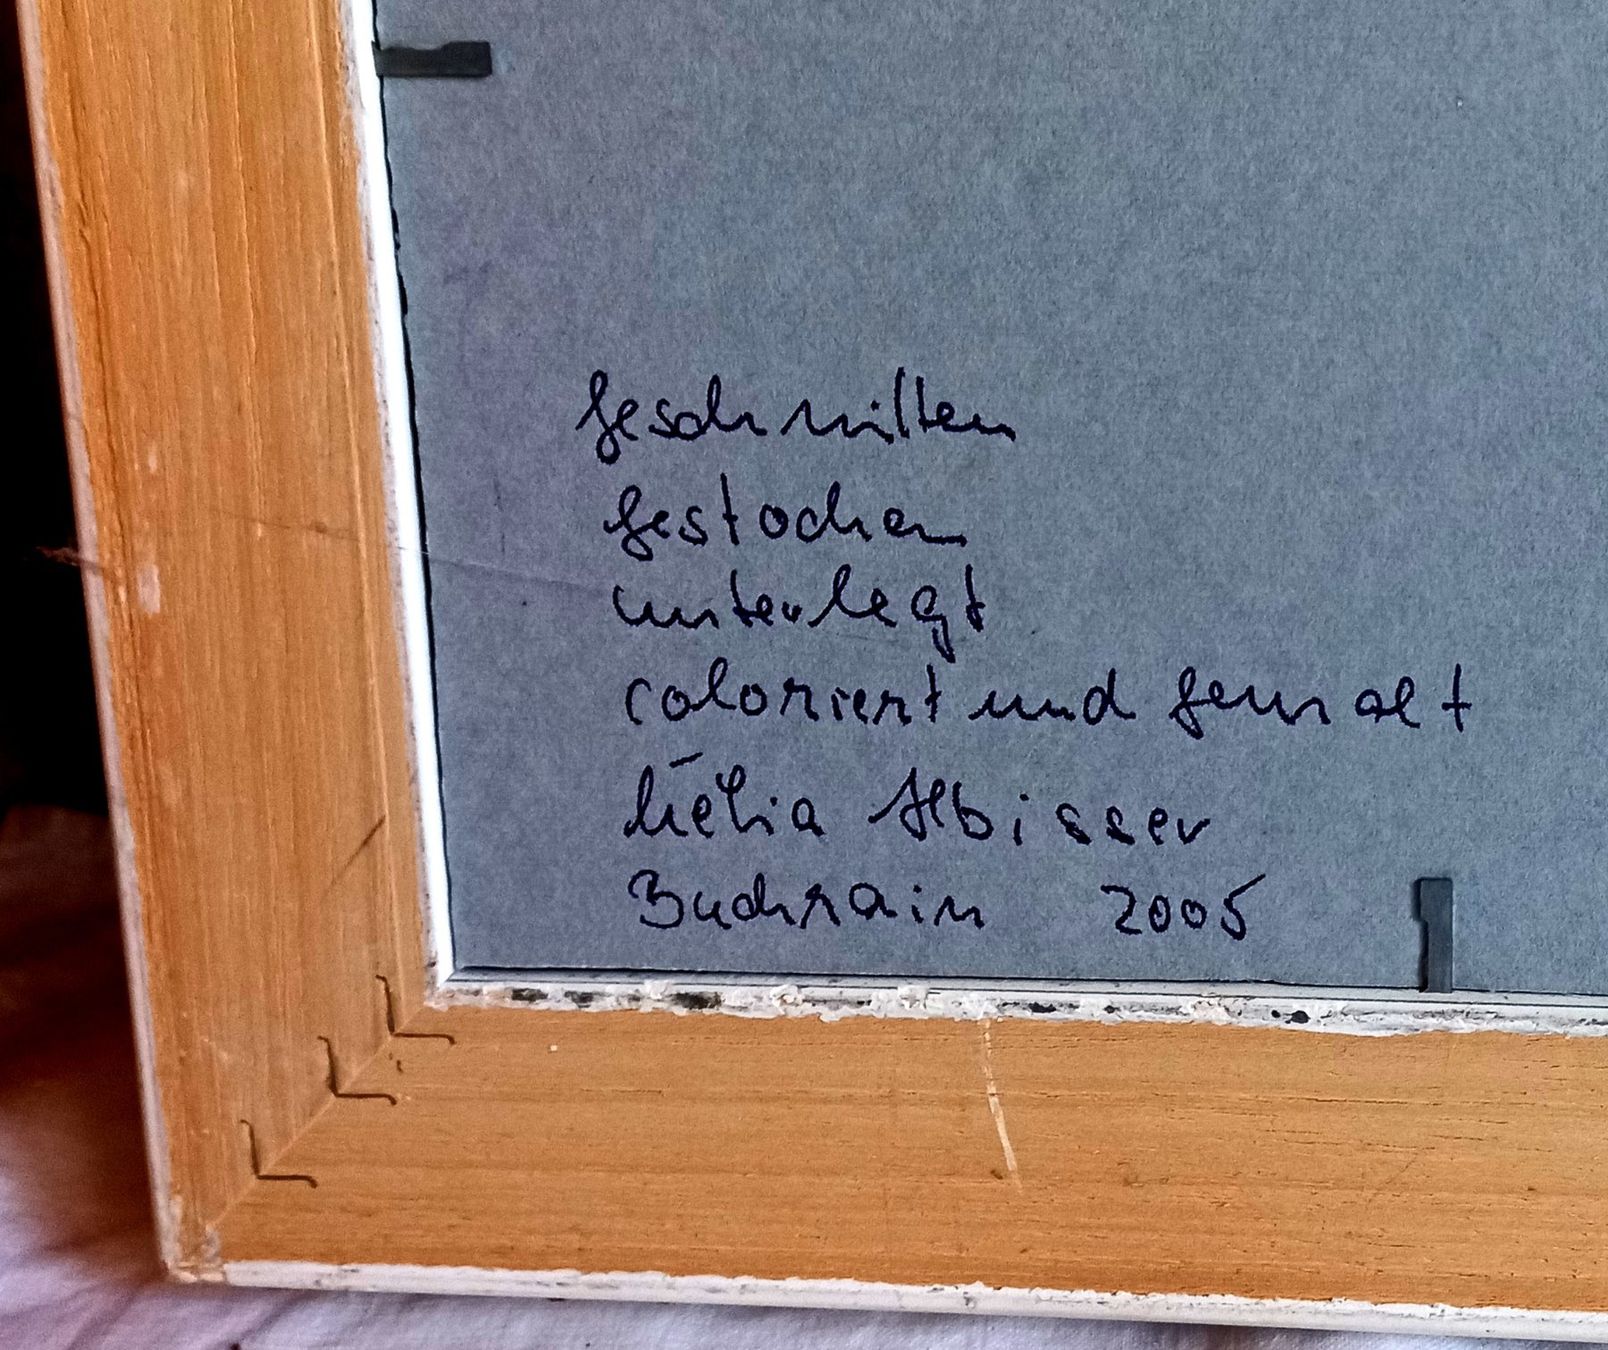 geschnitten
gestochen
unterlegt
coloriert und gemalt
Albisser
Buchrain 2005